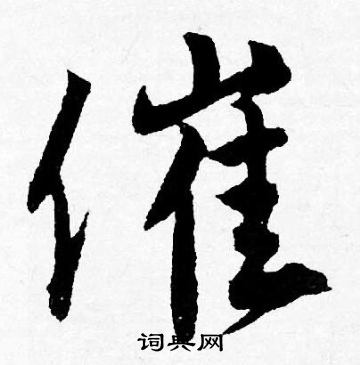 催
词典网